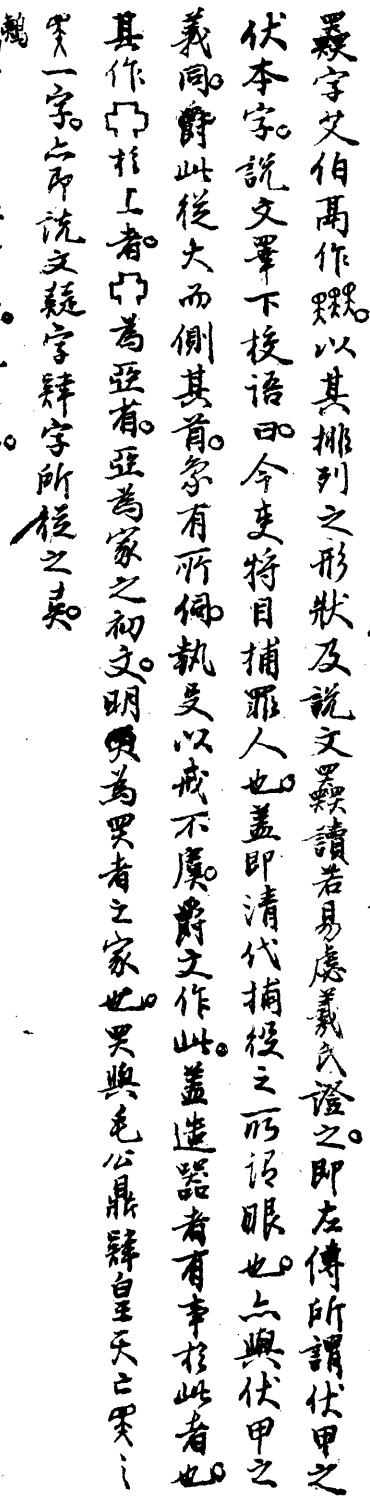 字艾伯鬲作。以其排列之形狀及說文讀若易虙羲氏證之。即左傳所謂伏甲之
伏本字。說文睪下按語曰。今吏將目捕罪人也。蓋即清代捕役之所謂眼也。亦與伏甲之
義同。爵此從大而側其首。象有所伺。執殳以戒不虞。爵文作此。蓋造器者有事於此者也。
其作於上者。為亞。有亞為家之初文。明為者之家也。與毛公鼎肆皇天亡
一字。亦即說文疑字肄字所從之。